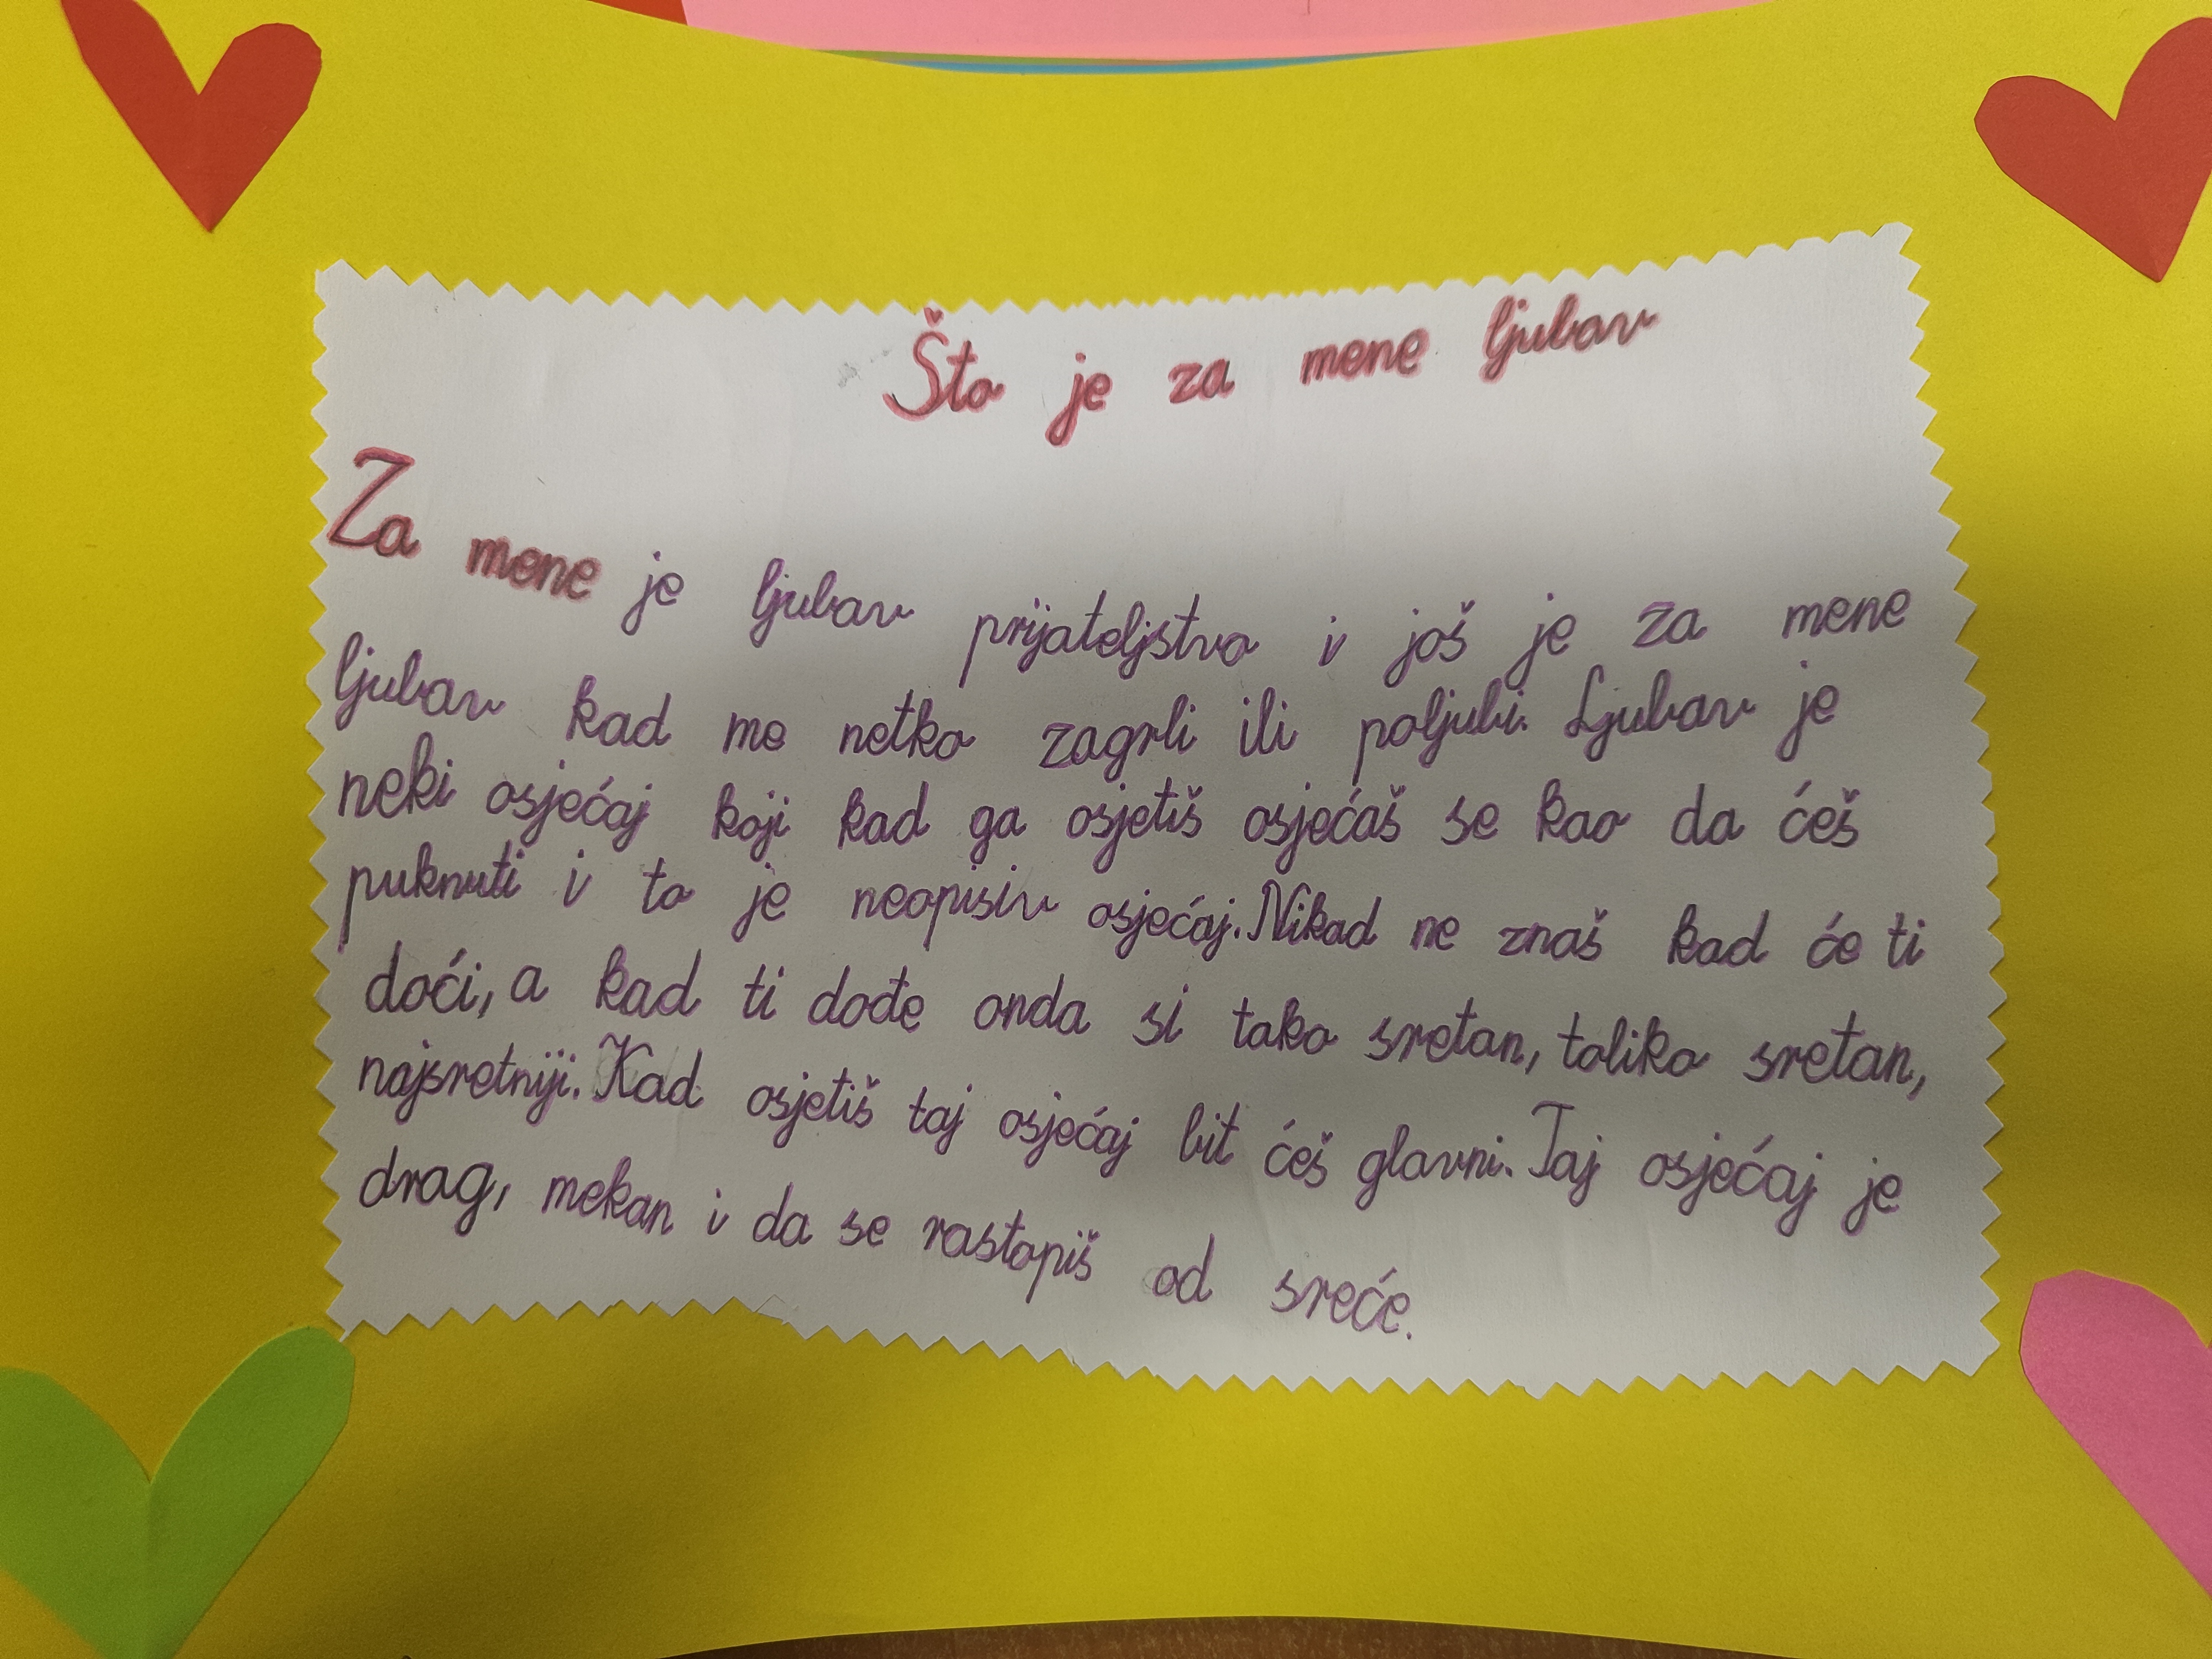 Što je za mene ljubav
Za mene je ljubav prijateljstvo i još je za mene
ljubav kad me netko zagrli ili poljubi. Ljubav je
neki osjećaj koji kad ga osjetiš osjećaš se kao da ćeš
puknuti i to je neopisiv osjećaj. Nikad ne znaš kad će ti
doći, a kad ti dođe onda si tako sretan, toliko sretan,
najsretniji. Kad osjetiš taj osjećaj bit ćeš glavni. Taj osjećaj je
drag, mekan i da se rastopiš od sreće.